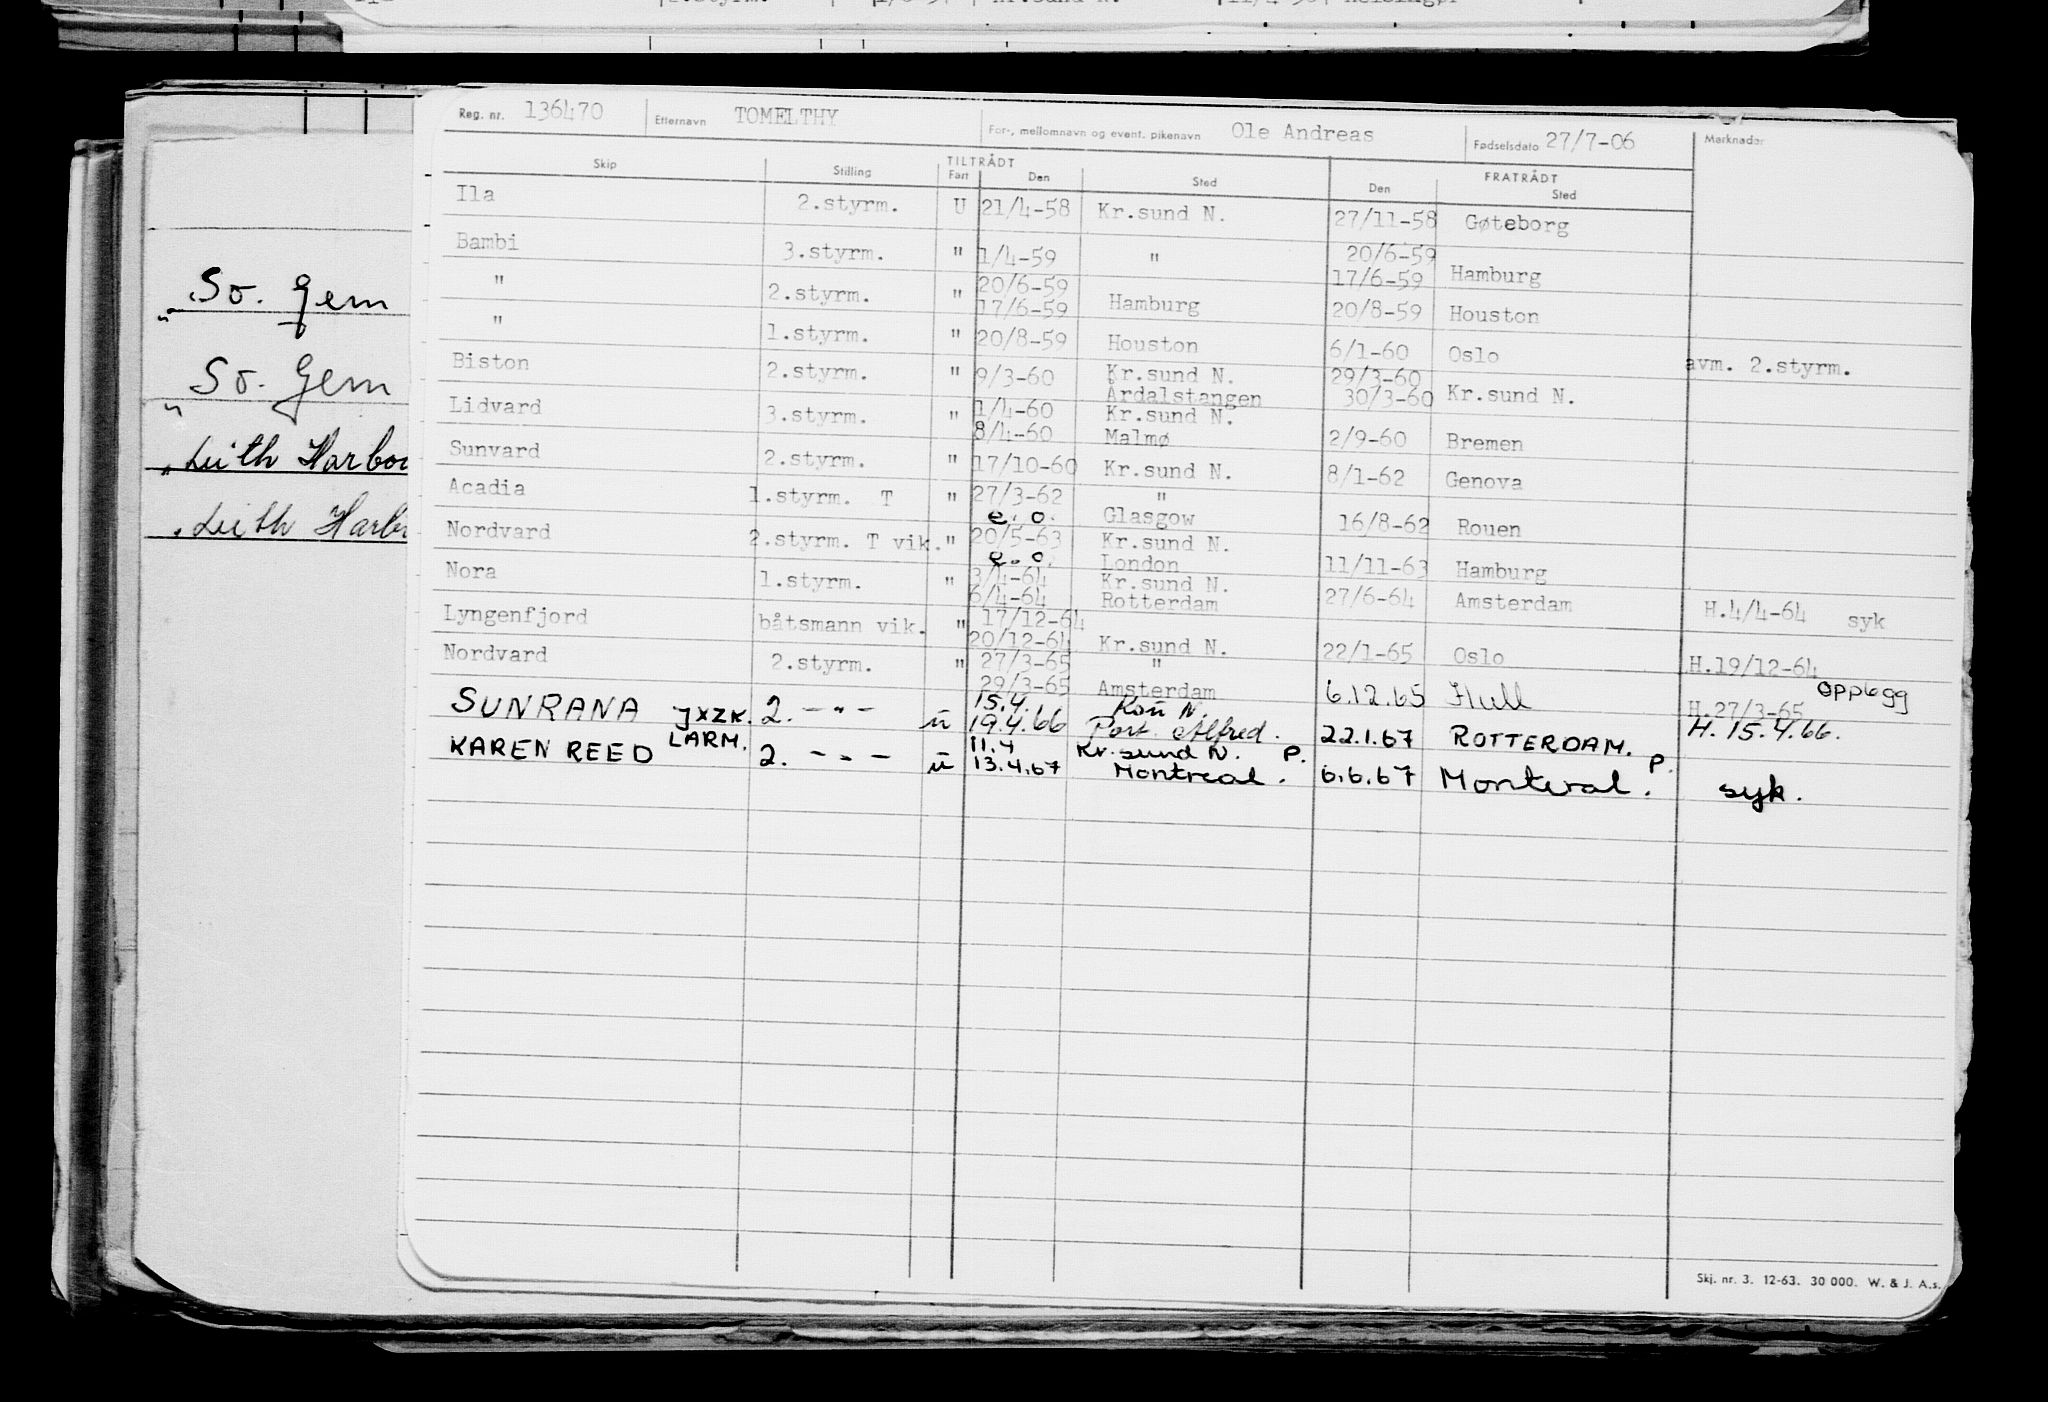 2.styrm. 1/8-57 Kr.sund N. 11/4-58 Helsingør
Reg. nr. 136470 Etternavn TOMELTHY For-, mellomnavn og event. pikenavn Ole Andreas Fødselsdato 27/7-06 Merknader
TILTRÅDT FRATRÅDT
Skip Stilling Fart Den Sted Den Sted
Ila 2.styrm. U 21/4-58 Kr.sund N. 27/11-58 Gøteborg
Bambi 3.styrm. " 1/4-59 " 20/6-59
17/6-59 Hamburg
" 2.styrm. " 20/6-59
17/6-59 Hamburg 20/8-59 Houston
" 1.styrm. " 20/8-59 Houston 6/1-60 Oslo avm. 2.styrm.
Biston 2.styrm. " 9/3-60 Kr.sund N. 29/3-60
Årdalstangen 30/3-60 Kr.sund N.
Lidvard 3.styrm. " 1/4-60 Kr.sund N.
8/4-60 Malmø 2/9-60 Bremen
Sunvard 2.styrm. " 17/10-60 Kr.sund N. 8/1-62 Genova
Acadia 1.styrm. T " 27/3-62 "
e.o. Glasgow 16/8-62 Rouen
Nordvard 2.styrm. T vik. " 20/5-63 Kr.sund N.
e.o. London 11/11-63 Hamburg
Nora 1.styrm. " 3/4-64 Kr.sund N.
6/4-64 Rotterdam 27/6-64 Amsterdam H.4/4-64 syk
Lyngenfjord båtsmann vik. " 17/12-64
20/12-64 Kr.sund N. 22/1-65 Oslo H.19/12-64
Nordvard 2.styrm. " 27/3-65 "
29/3-65 Amsterdam 6.12.65 Hull opplegg
H.27/3-65
SUNRANA JXZK. 2. -"- u 15.4. Kr.su N.
19.4.66 Port Alfred. 22.1.67 ROTTERDAM. H. 15.4.66.
KAREN REED LARM. 2. -"- u 11.4 Kr.sund N. P.
13.4.67 Montreal. 6.6.67 Montreal. P. syk.
So. Gem
"
So. Gem
"
" Leith Harbou
" Leith Harb
Skj. nr. 3. 12-63. 30 000. W. & J. A.s.